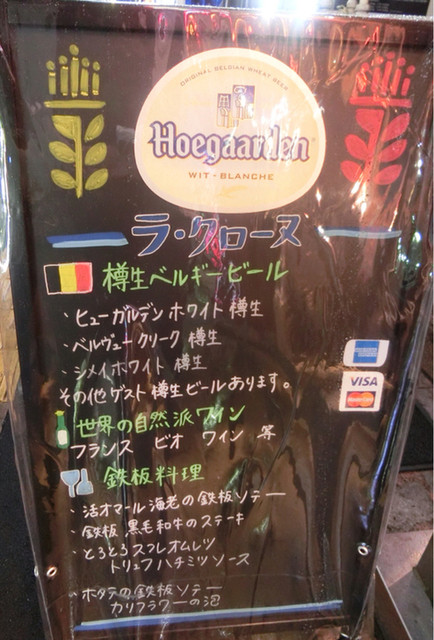 ORIGINAL BELGIAN WHEAT BEER
Hoegaarden
WIT-BLANCHE
ラ・クローヌ
樽生ベルギービール
・ヒューガルデン ホワイト 樽生
・ベルヴュークリーク 樽生
・シメイホワイト 樽生
その他ゲスト樽生ビールあります。
世界の自然派ワイン
フランス ビオ ワイン 等
鉄板料理
・活オマール海老の鉄板ソテー
・鉄板 黒毛和牛のステーキ
・とろとろスフレオムレツ
トリュフハチミツソース
・ホタテの鉄板ソテー
カリフラワーの泡
VISA
MasterCard